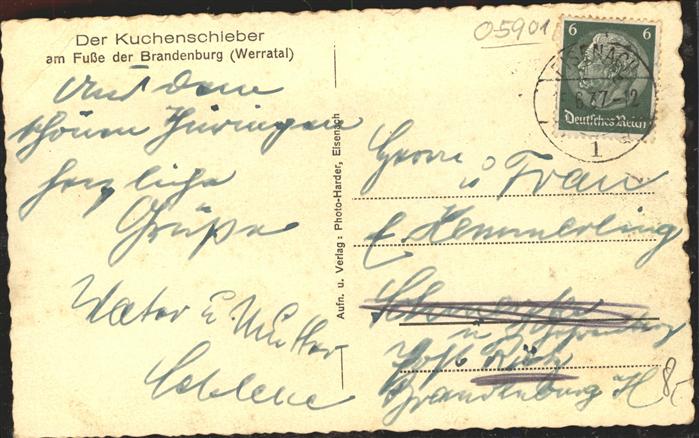 Der Kuchenschieber
am Fuße der Brandenburg (Werratal)
05901
6 6
EISENACH
Deutsches Reich
1
Aus dem
schönen Thüringen
herzliche
Grüße
Vater u Mutter
Aufn. u. Verlag: Photo-Harder, Eisenach
Herrn
u Frau
Hemmerling
Post
Brandenburg H
8,-